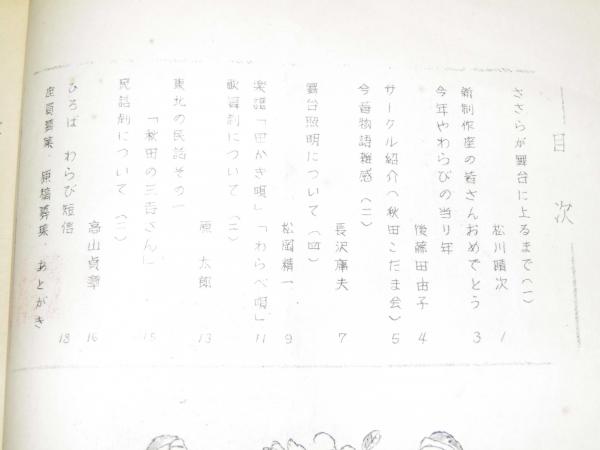 目次
ささらが舞台に上るまで(一)
松川晴次 1
新制作座の皆さんおめでとう 3
今年やわらびの当り年
後藤田由子 4
サークル紹介(秋田こだま会) 5
今昔物語雑感(二)
長沢庸夫 7
舞台照明について(四)
松岡精一 9
楽譜「田かき唄」「わらべ唄」 11
歌舞劇について(三)
原太郎 13
東北の民話その一
「秋田の三吉さん」 15
民話劇について(二)
高山貞章 16
ひろば わらび短信 18
座員募集・原稿募集・あとがき